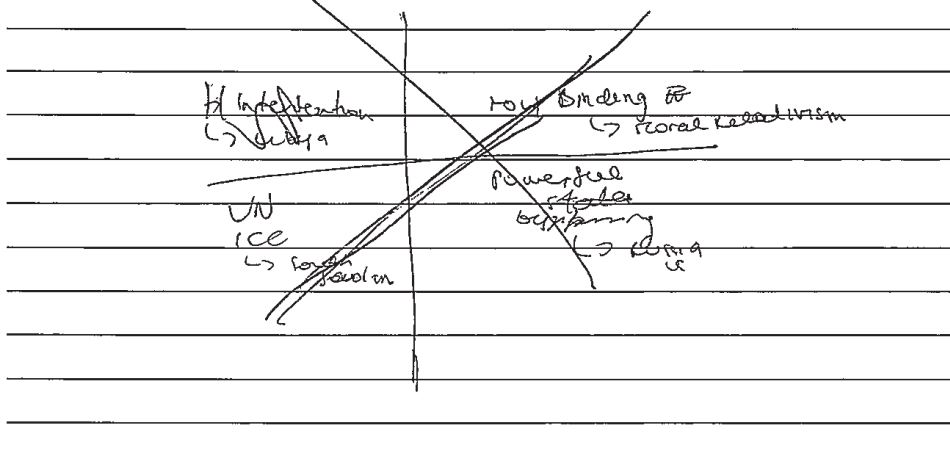 H intervention
↳ Libya
non Binding
↳ moral Relativism
UN
ICC
↳ South
Sudan
Powerful
states
bypassing
↳ Russia
US